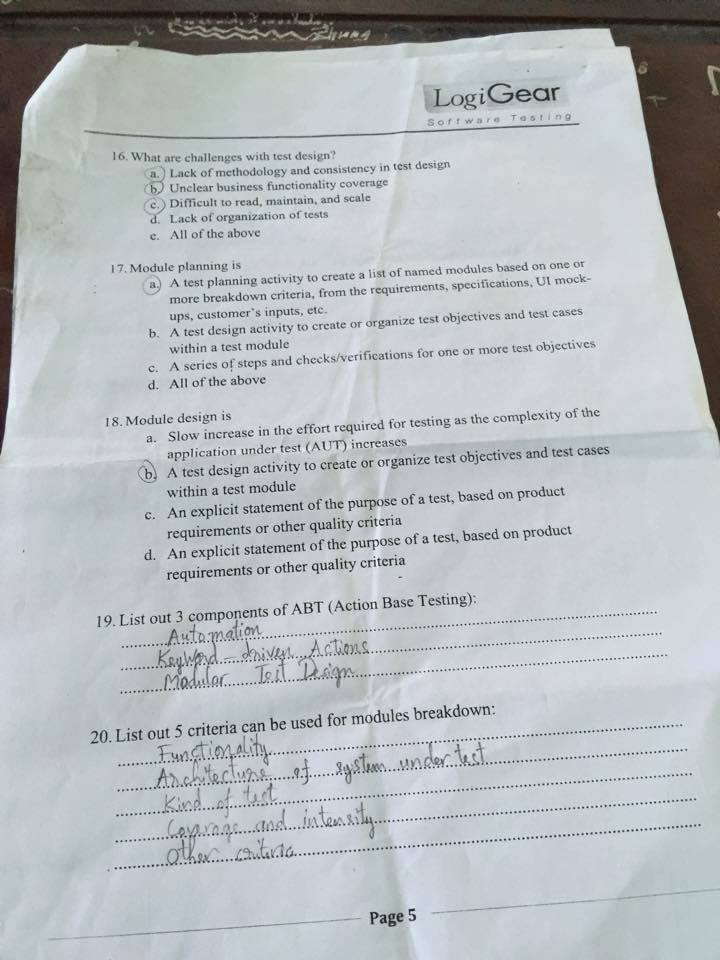 LogiGear
Software Testing
16. What are challenges with test design?
a. Lack of methodology and consistency in test design
b. Unclear business functionality coverage
c. Difficult to read, maintain, and scale
d. Lack of organization of tests
e. All of the above
17. Module planning is
a. A test planning activity to create a list of named modules based on one or
more breakdown criteria, from the requirements, specifications, UI mock-
ups, customer's inputs, etc.
b. A test design activity to create or organize test objectives and test cases
within a test module
c. A series of steps and checks/verifications for one or more test objectives
d. All of the above
18. Module design is
a. Slow increase in the effort required for testing as the complexity of the
application under test (AUT) increases
b. A test design activity to create or organize test objectives and test cases
within a test module
c. An explicit statement of the purpose of a test, based on product
requirements or other quality criteria
d. An explicit statement of the purpose of a test, based on product
requirements or other quality criteria
19. List out 3 components of ABT (Action Base Testing):
Automation
Keyword - driven Actions
Modular Test Design
20. List out 5 criteria can be used for modules breakdown:
Functionality
Architecture of system under test
Kind of test
Coverage and intensity
Other criteria
Page 5